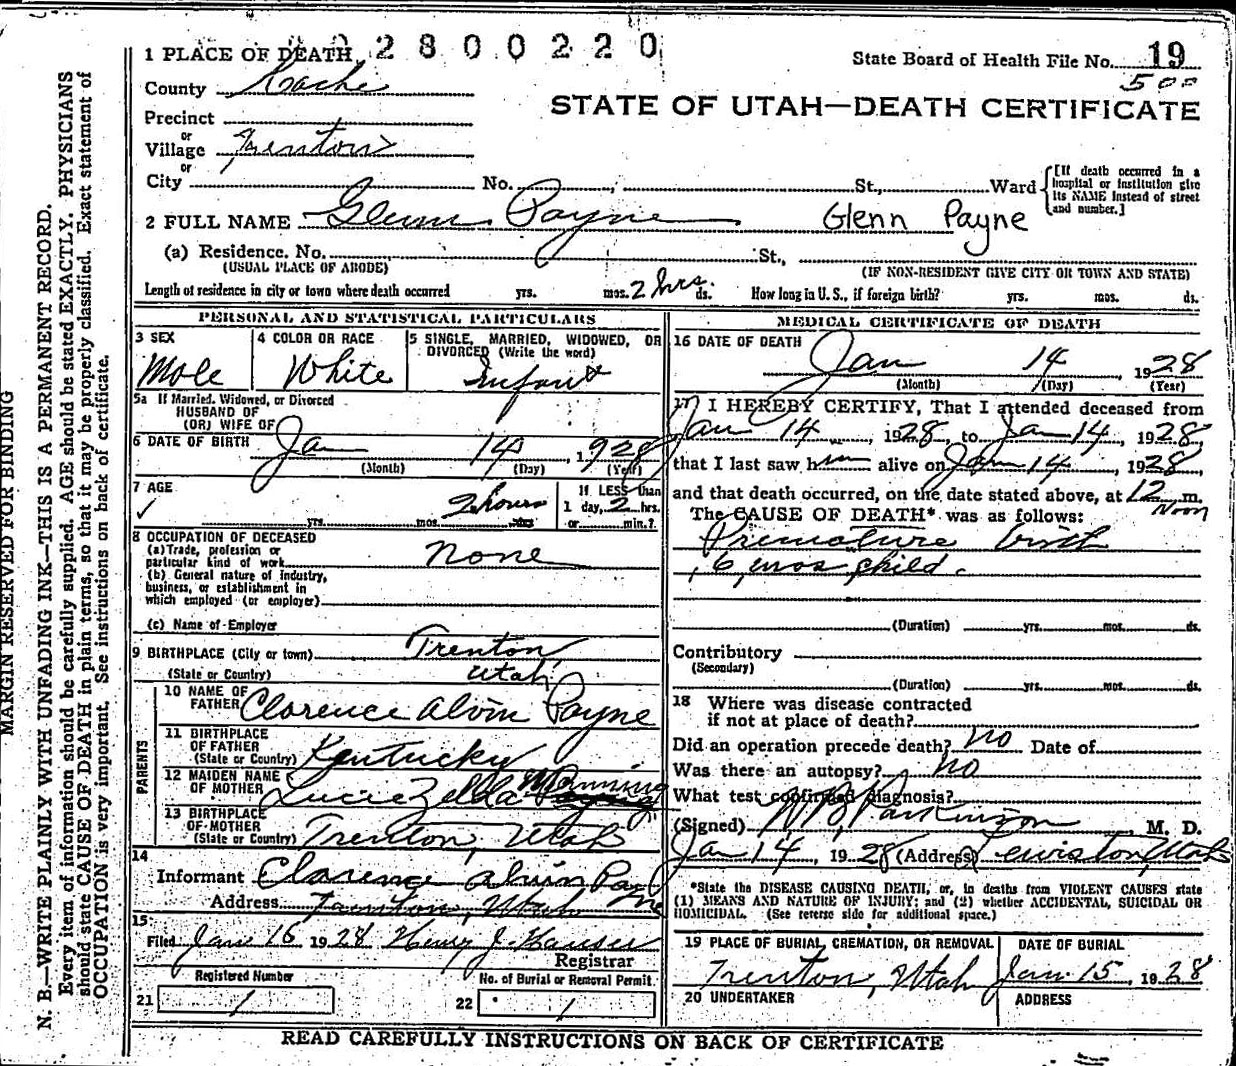 2 8 0 0 2 2 0
1 PLACE OF DEATH
State Board of Health File No. 19
500
County Kache
STATE OF UTAH—DEATH CERTIFICATE
Precinct
or
Village Trenton
or
City No. St., Ward
[If death occurred in a hospital or institution give its NAME instead of street and number.]
2 FULL NAME Glenn Payne Glenn Payne
(a) Residence. No. St.,
(USUAL PLACE OF ABODE) (IF NON-RESIDENT GIVE CITY OR TOWN AND STATE)
Length of residence in city or town where death occurred yrs. mos. 2 hrs. ds. How long in U. S., if foreign birth? yrs. mos. ds.
PERSONAL AND STATISTICAL PARTICULARS
3 SEX Male
4 COLOR OR RACE White
5 SINGLE, MARRIED, WIDOWED, OR DIVORCED (Write the word) Infant
5a If Married, Widowed, or Divorced
HUSBAND OF
(OR) WIFE OF
6 DATE OF BIRTH Jan 14, 1928
(Month) (Day) (Year)
7 AGE 2 hours
yrs. mos. hrs.
If LESS than
1 day, 2 hrs.
or min.?
8 OCCUPATION OF DECEASED
(a) Trade, profession or
particular kind of work None
(b) General nature of industry,
business, or establishment in
which employed (or employer)
(c) Name of Employer
9 BIRTHPLACE (City or town) Trenton
(State or Country) Utah
PARENTS
10 NAME OF FATHER Clarence Alvin Payne
11 BIRTHPLACE OF FATHER (State or Country) Kentucky
12 MAIDEN NAME OF MOTHER Lucie Zelda Manning
13 BIRTHPLACE OF MOTHER (State or Country) Trenton, Utah
14
Informant Clarence Alvin Payne
Address Trenton, Utah
15
Filed Jan 16 1928 Henry J. Hansen
Registrar
Registered Number
21 1
No. of Burial or Removal Permit
22 1
MEDICAL CERTIFICATE OF DEATH
16 DATE OF DEATH
Jan 14, 1928
(Month) (Day) (Year)
17 I HEREBY CERTIFY, That I attended deceased from
Jan 14, 1928, to Jan 14, 1928,
that I last saw him alive on Jan 14, 1928,
and that death occurred, on the date stated above, at 12 m.
Noon
The CAUSE OF DEATH* was as follows:
Premature birth
6 mos child.
(Duration) yrs. mos. ds.
Contributory
(Secondary)
(Duration) yrs. mos. ds.
18 Where was disease contracted
if not at place of death?
Did an operation precede death? no Date of
Was there an autopsy? no
What test confirmed diagnosis?
(Signed) W B Parkinson M. D.
Jan 14, 1928 (Address) Lewiston, Utah
*State the DISEASE CAUSING DEATH, or, in deaths from VIOLENT CAUSES state
(1) MEANS AND NATURE OF INJURY; and (2) whether ACCIDENTAL, SUICIDAL OR
HOMICIDAL. (See reverse side for additional space.)
19 PLACE OF BURIAL, CREMATION, OR REMOVAL Trenton, Utah
DATE OF BURIAL Jan 15, 1928
20 UNDERTAKER
ADDRESS
READ CAREFULLY INSTRUCTIONS ON BACK OF CERTIFICATE
MARGIN RESERVED FOR BINDING
N. B.—WRITE PLAINLY WITH UNFADING INK—THIS IS A PERMANENT RECORD.
Every item of information should be carefully supplied. AGE should be stated EXACTLY. PHYSICIANS
should state CAUSE OF DEATH in plain terms, so that it may be properly classified. Exact statement of
OCCUPATION is very important. See instructions on back of certificate.